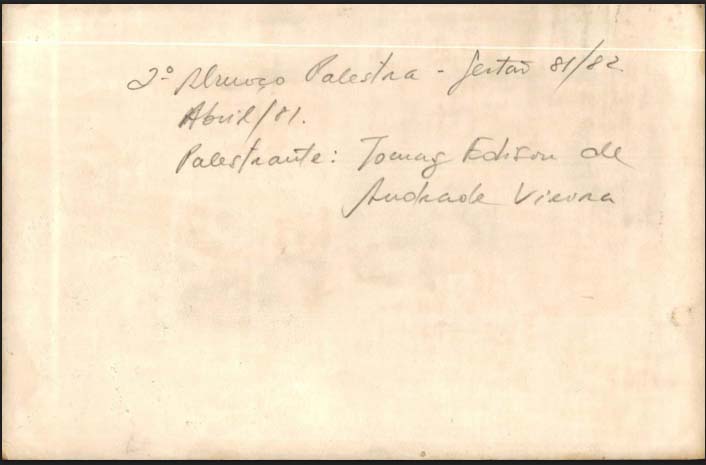 2º Almoço Palestra - Gestão 81/82
Abril/81.
Palestrante: Tomaz Edison de
Andrade Vieira